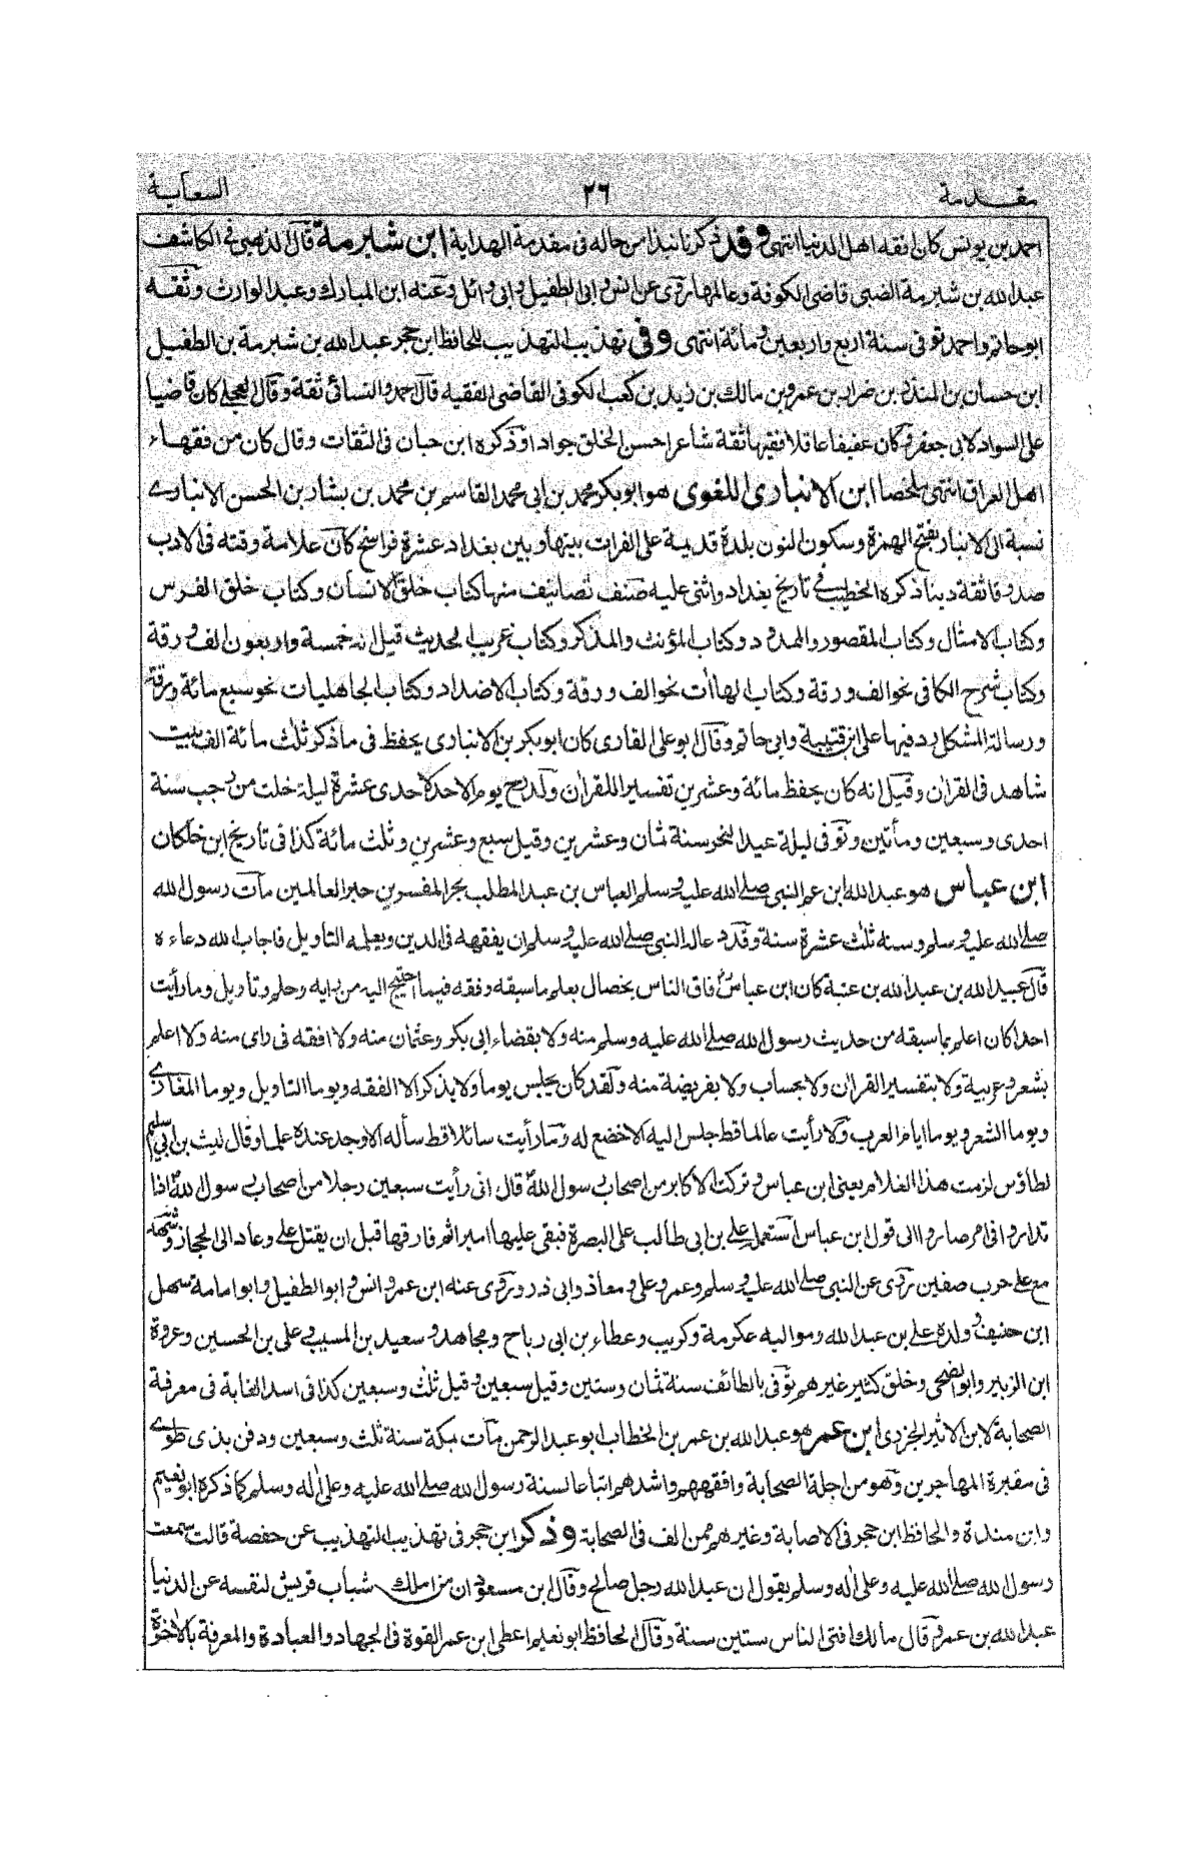 مقدمة ٢٦ السعاية
احمد بن يونس كان افقه اهل الدنيا انتهى وقد ذكرنا نبذا من حاله فى مقدمة الهداية ابن شبرمة قال الذهبي في الكاشف
عبد الله بن شبرمة الضبى قاضى الكوفة وعالمها روى عن انس وابى الطفيل وابى وائل وعنه ابن المبارك وعبد الوارث وثقه
ابو حاتم واحمد توفى سنة اربع واربعين ومائة انتهى وفى تهذيب التهذيب للحافظ ابن حجر عبد الله بن شبرمة بن الطفيل
ابن حسان بن المنذر بن ضرار بن عمرو بن مالك بن زيد بن كعب الكوفى القاضى الفقيه قال احمد والنسائى ثقة وقال العجلى كان قاضيا
على السواد لابى جعفر وكان عفيفا عاقلا فقيها ثقة شاعرا حسن الخلق جوادا وذكره ابن حبان فى الثقات وقال كان من فقهاء
اهل العراق انتهى ملخصا ابن الانبارى اللغوى هو ابوبكر محمد بن ابى محمد القاسم بن محمد بن بشار بن الحسن الانبارے
نسبة الى الانبار بفتح الهمزة وسكون النون بلدة قديمة على الفرات بينها وبين بغداد عشرة فراسخ كان علامة وقته فى الادب
صدوقا ثقة دينا ذكره الخطيب فى تاريخ بغداد واثنى عليه صنف تصانيف منها كتاب خلق الانسان وكتاب خلق الفرس
وكتاب الامثال وكتاب المقصور والممدود وكتاب المؤنث والمذكر وكتاب غريب الحديث قيل انه خمسة واربعون الف ورقة
وكتاب شرح الكافى نحو الف ورقة وكتاب الهاات نحو الف ورقة وكتاب الاضداد وكتاب الجاهليات نحو سبع مائة ورقة
ورسالة المشكل رد فيها على ابن قتيبة وابى حاتم وقال ابو على القارى كان ابوبكر بن الانبارى يحفظ فى ما ذكر ثلث مائة الف بيت
شاهد فى القران وقيل انه كان يحفظ مائة وعشرين تفسيرا للقران ولد يوم الاحد لاحدى عشرة ليلة خلت من رجب سنة
احدى وسبعين ومأتين وتوفى ليلة عيد النحر سنة ثمان وعشرين وقيل سبع وعشرين وثلث مائة كذا فى تاريخ ابن خلكان
ابن عباس هو عبد الله ابن عم النبى صلى الله عليه وسلم العباس بن عبد المطلب بحر المفسرين حبر العالمين مات رسول الله
صلے الله عليه وسلم وسنه ثلث عشرة سنة وقد دعا له النبى صلے الله عليه وسلم ان يفقهه فى الدين ويعلمه التأويل فاجاب الله دعاءه
قال عبيد الله بن عبد الله بن عتبة كان ابن عباس فاق الناس بخصال بعلم ما سبقه وفقه فيما احتيج اليه من رايه وحلم وتأويل وما رأيت
احدا كان اعلم بما سبقه من حديث رسول الله صلے الله عليه وسلم منه ولا بقضاء ابى بكر وعثمان منه ولا افقه فى راى منه ولا اعلم
بشعر وعربية ولا بتفسير القران ولا بحساب ولا بفريضة منه ولقد كان يجلس يوما ولا يذكر الا الفقه ويوما التاويل ويوما المغازى
ويوما الشعر ويوما ايام العرب ولا رأيت عالما قط جلس اليه الا خضع له وما رأيت سائلا قط سأله الا وجد عنده علما وقال ليث بن ابى سليم
لطاؤس لزمت هذا الغلام يعنى ابن عباس وتركت الاكابر من اصحاب رسول الله قال انى رأيت سبعين رجلا من اصحاب رسول الله اذا
تداروا فى امر صاروا الى قول ابن عباس استعمل على بن ابى طالب على البصرة فبقى عليها اميرا ثم فارقها قبل ان يقتل على وعاد الى الحجاز وشهد
مع على حرب صفين روى عن النبى صلے الله عليه وسلم وعمر وعلى ومعاذ وابى ذر وروى عنه ابن عمر وانس وابو الطفيل وابو امامة سهل
ابن حنيف وولده على بن عبد الله ومواليه عكرمة وكريب وعطاء بن ابى رباح ومجاهد وسعيد بن المسيب وعلى بن الحسين وعروة
ابن الزبير وابو الضحى وخلق كثير غيرهم توفى بالطائف سنة ثمان وستين وقيل سبعين وقيل ثلث وسبعين كذا فى اسد الغابة فى معرفة
الصحابة لابن الاثير الجزرى ابن عمر هو عبد الله بن عمر بن الخطاب ابو عبد الرحمن مات بمكة سنة ثلث وسبعين ودفن بذى طوے
فى مقبرة المهاجرين وهو من اجلة الصحابة وافقههم واشدهم اتباعا لسنة رسول الله صلے الله عليه وعلى اله وسلم كما ذكره ابو نعيم
وابن مندة والحافظ ابن حجر فى الاصابة وغيرهم ممن الف فى الصحابة وذكر ابن حجر فى تهذيب التهذيب عن حفصة قالت سمعت
رسول الله صلے الله عليه وعلى اله وسلم يقول ان عبد الله رجل صالح وقال ابن مسعود ان من املك شباب قريش لنفسه عن الدنيا
عبد الله بن عمر وقال مالك افتى الناس ستين سنة وقال الحافظ ابو نعيم اعطى ابن عمر القوة فى الجهاد والعبادة والمعرفة بالاخرة